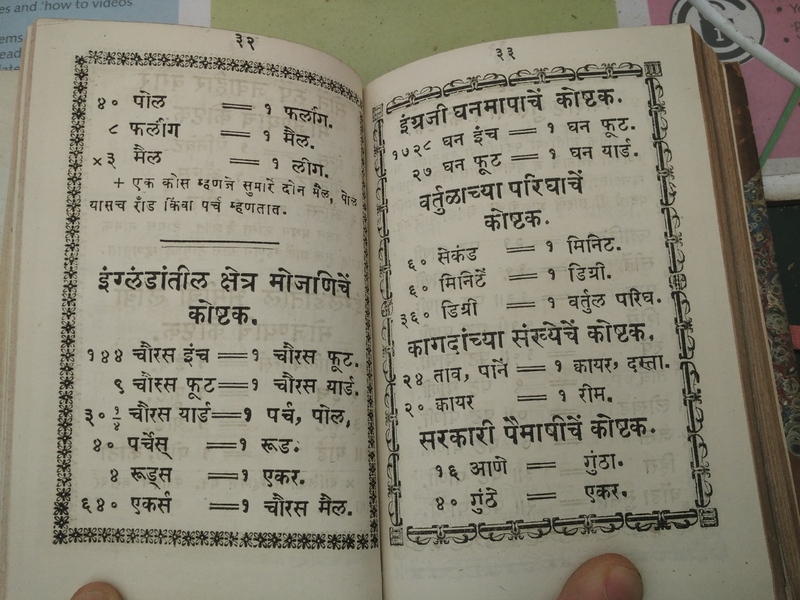 es and 'how to videos
ems
ead
३२
४० पोल ══ १ फर्लांग.
८ फर्लांग ══ १ मैल.
×३ मैल ══ १ लीग.
+ एक कोस म्हणजे सुमारें दोन मैल, पोल
यासच राँड किंवा पर्च म्हणतात.
इंग्लंडांतील क्षेत्र मोजणिचें
कोष्टक.
१४४ चौरस इंच ══ १ चौरस फूट.
९ चौरस फूट ══ १ चौरस यार्ड.
३० १/४ चौरस यार्ड ══ १ पर्च, पोल,
४० पर्चेस् ══ १ रूड.
४ रूड्स ══ १ एकर.
६४० एकर्स ══ १ चौरस मैल.
३३
इंग्रजी घनमापाचें कोष्टक.
१७२८ घन इंच ══ १ घन फूट.
२७ घन फूट ══ १ घन यार्ड.
वर्तुळाच्या परिघाचें
कोष्टक.
६० सेकंड ══ १ मिनिट.
६० मिनिटें ══ १ डिग्री.
३६० डिग्री ══ १ वर्तुल परिघ.
कागदांच्या संख्येचें कोष्टक.
२४ ताव, पानें ══ १ कायर, दस्ता.
२० कायर ══ १ रीम.
सरकारी पैमाषीचें कोष्टक.
१६ आणे ══ गुंठा.
४० गुंठे ══ एकर.